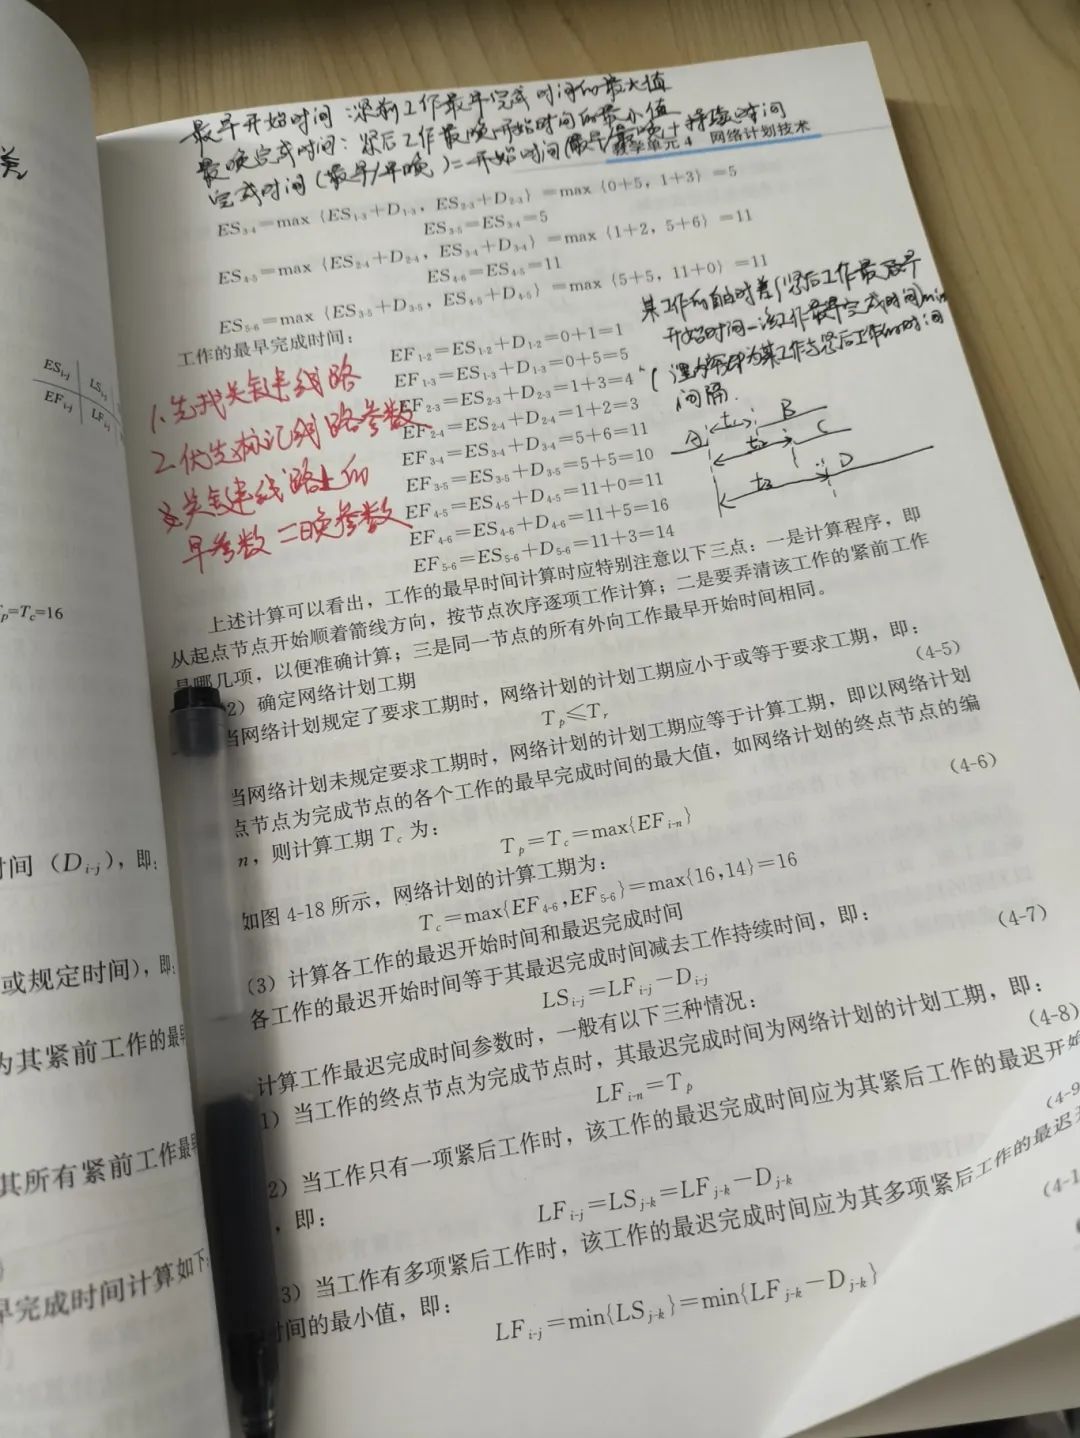 最早开始时间：紧前工作最早完成时间的最大值
最晚完成时间：紧后工作最晚开始时间的最小值
完成时间（最早/最晚）=开始时间(最早/最晚)+持续时间
教学单元4 网络计划技术
ES₃₋₄=max {ES₁₋₃+D₁₋₃, ES₂₋₃+D₂₋₃} =max {0+5, 1+3} =5
ES₃₋₅=ES₃₋₄=5
ES₄₋₅=max {ES₂₋₄+D₂₋₄, ES₃₋₄+D₃₋₄} =max {1+2, 5+6} =11
ES₄₋₆=ES₄₋₅=11
ES₅₋₆=max {ES₃₋₅+D₃₋₅, ES₄₋₅+D₄₋₅} =max {5+5, 11+0} =11
工作的最早完成时间：
EF₁₋₂=ES₁₋₂+D₁₋₂=0+1=1
EF₁₋₃=ES₁₋₃+D₁₋₃=0+5=5
EF₂₋₃=ES₂₋₃+D₂₋₃=1+3=4
EF₂₋₄=ES₂₋₄+D₂₋₄=1+2=3
EF₃₋₄=ES₃₋₄+D₃₋₄=5+6=11
EF₃₋₅=ES₃₋₅+D₃₋₅=5+5=10
EF₄₋₅=ES₄₋₅+D₄₋₅=11+0=11
EF₄₋₆=ES₄₋₆+D₄₋₆=11+5=16
EF₅₋₆=ES₅₋₆+D₅₋₆=11+3=14
1.先找关键线路
2.优先标记线路参数
3.关键线路上的
早参数=晚参数
某工作的自由时差(紧后工作最早
开始时间-该工作最早完成时间)min
为某工作与紧后工作的时间
间隔.
A t₁ B
t₂ C
t₃ D
上述计算可以看出，工作的最早时间计算时应特别注意以下三点：一是计算程序，即
从起点节点开始顺着箭线方向，按节点次序逐项工作计算；二是要弄清该工作的紧前工作
是哪几项，以便准确计算；三是同一节点的所有外向工作最早开始时间相同。
2）确定网络计划工期
当网络计划规定了要求工期时，网络计划的计划工期应小于或等于要求工期，即：
Tₚ≤Tᵣ (4-5)
当网络计划未规定要求工期时，网络计划的计划工期应等于计算工期，即以网络计划
点节点为完成节点的各个工作的最早完成时间的最大值，如网络计划的终点节点的编
n，则计算工期 T_c 为：
Tₚ=T_c=max{EFᵢ₋ₙ} (4-6)
如图 4-18 所示，网络计划的计算工期为：
T_c=max{EF₄₋₆,EF₅₋₆}=max{16,14}=16
(3) 计算各工作的最迟开始时间和最迟完成时间
各工作的最迟开始时间等于其最迟完成时间减去工作持续时间，即：
LSᵢ₋ⱼ=LFᵢ₋ⱼ−Dᵢ₋ⱼ (4-7)
计算工作最迟完成时间参数时，一般有以下三种情况：
1）当工作的终点节点为完成节点时，其最迟完成时间为网络计划的计划工期，即：
LFᵢ₋ₙ=Tₚ (4-8)
2）当工作只有一项紧后工作时，该工作的最迟完成时间应为其紧后工作的最迟开始
，即：
LFᵢ₋ⱼ=LSⱼ₋ₖ=LFⱼ₋ₖ−Dⱼ₋ₖ (4-9
3）当工作有多项紧后工作时，该工作的最迟完成时间应为其多项紧后工作的最迟
时间的最小值，即：
LFᵢ₋ⱼ=min{LSⱼ₋ₖ}=min{LFⱼ₋ₖ−Dⱼ₋ₖ} (4-1
ESᵢ₋ⱼ LSᵢ₋ⱼ
EFᵢ₋ⱼ LFᵢ₋ⱼ
=T_c=16
时间 (Dᵢ₋ⱼ)，即：
或规定时间)，即：
为其紧前工作的最
其所有紧前工作最
早完成时间计算如下